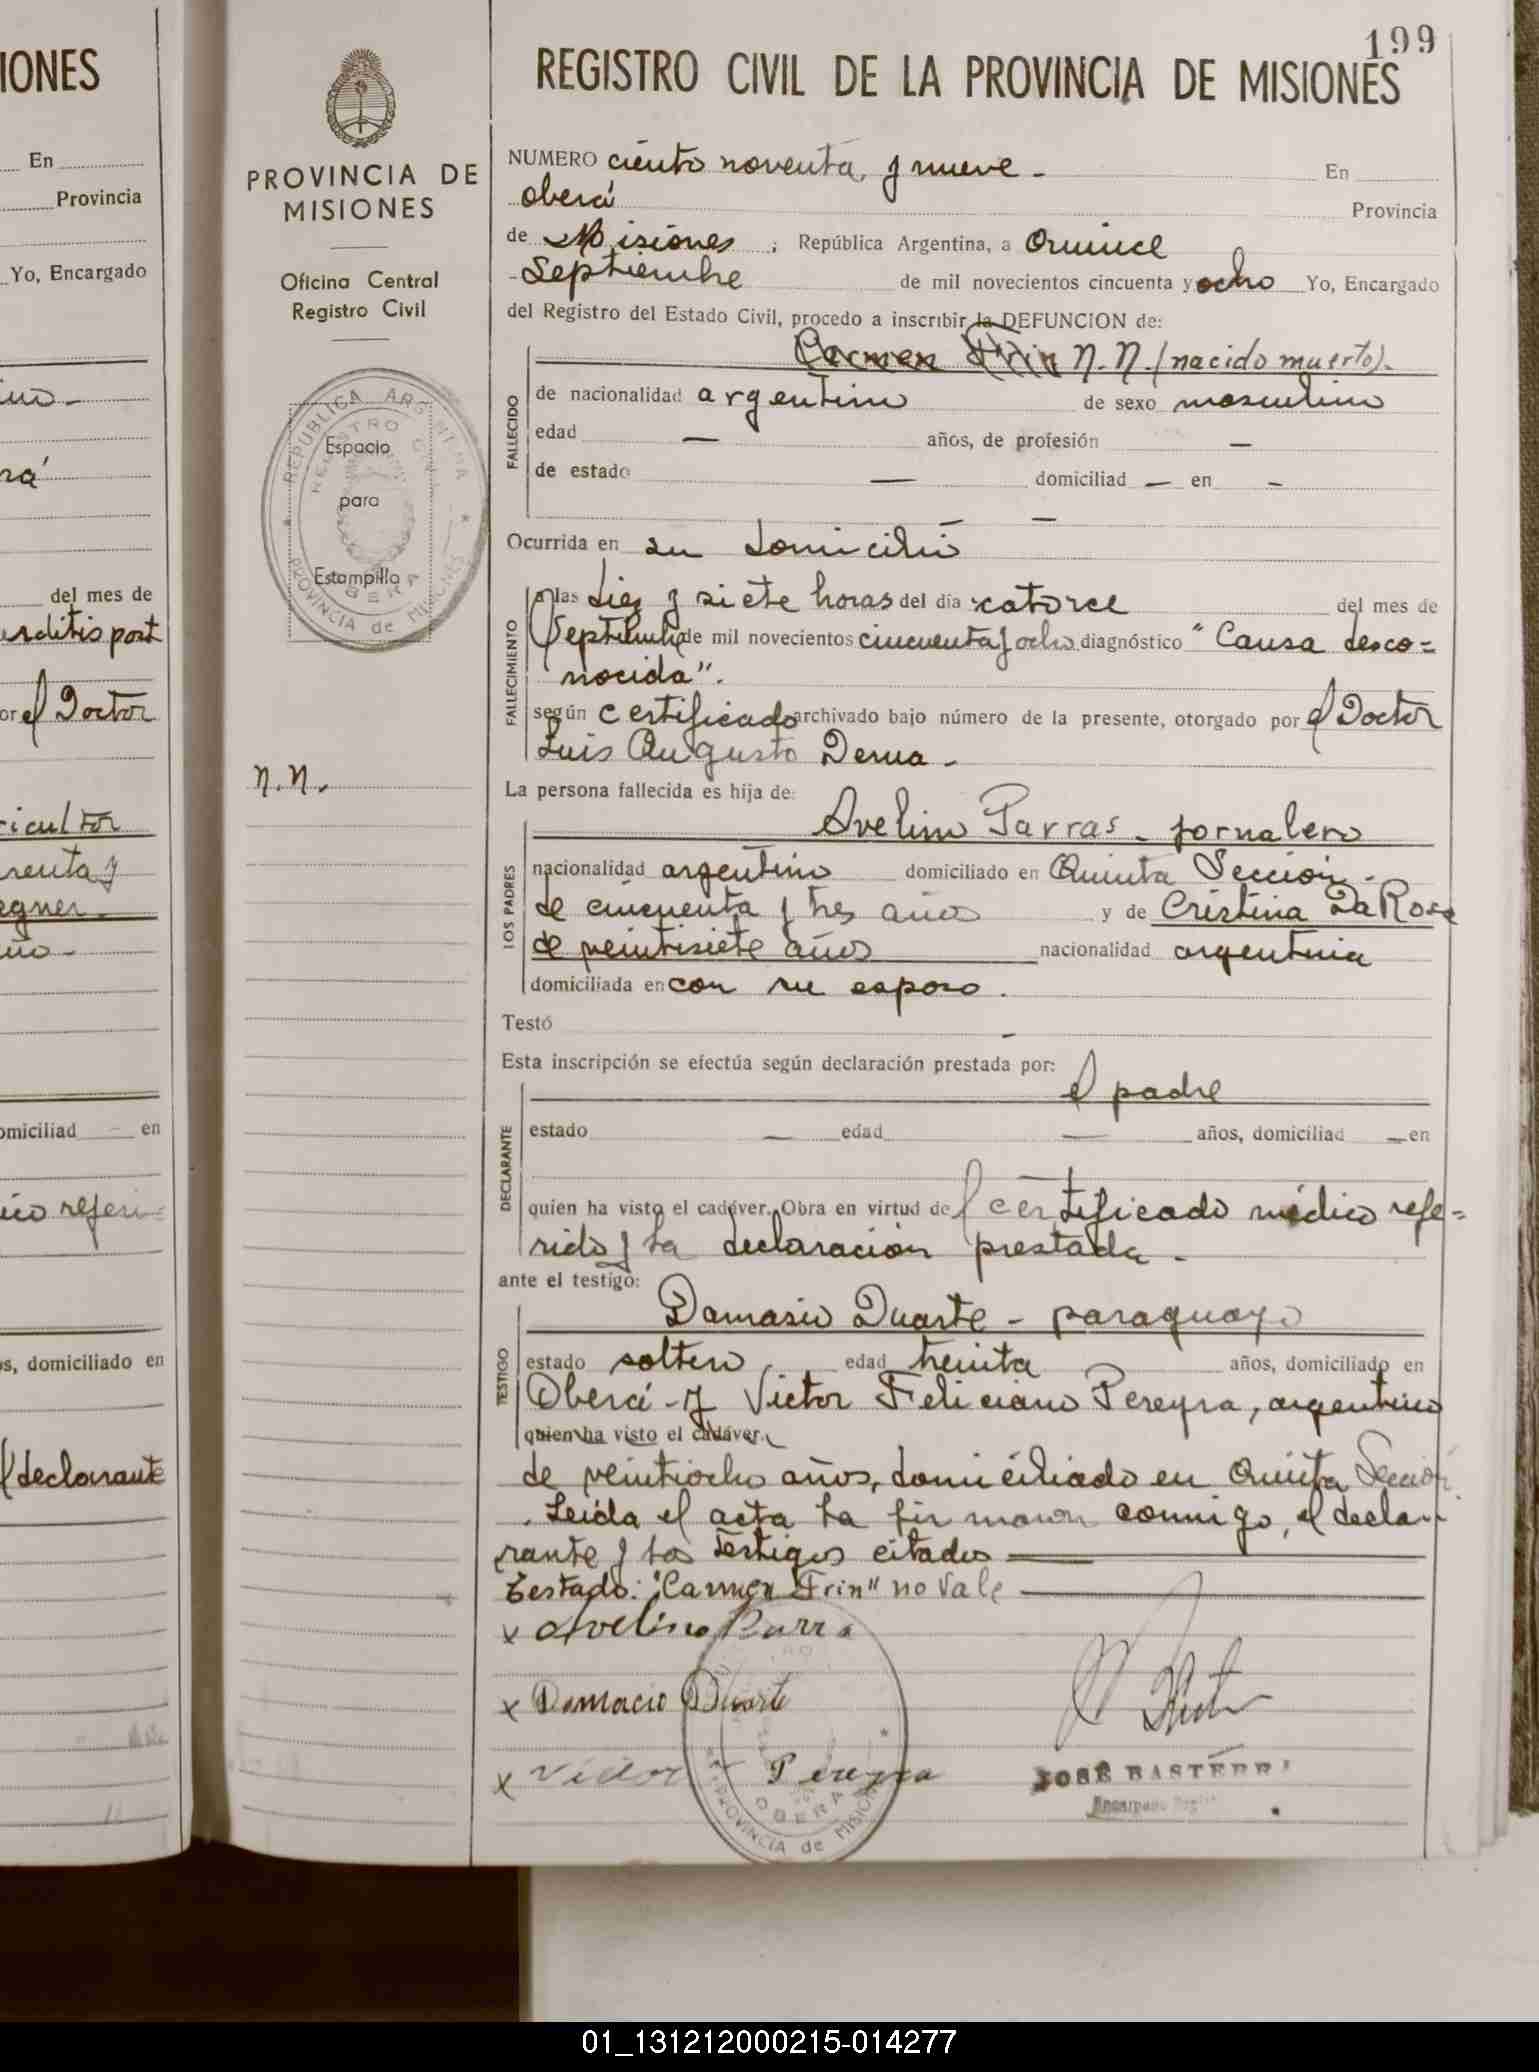 IONES
En
Provincia
Yo, Encargado
ino-
rá
del mes de
arditis post
or el Doctor
ricultor
renta y
egner
ño-
omiciliad en
ico referi=
os, domiciliado en
el declarante
PROVINCIA DE
MISIONES
Oficina Central
Registro Civil
REPUBLICA ARGENTINA
REGISTRO CIVIL
Espacio
para
Estampilla
OBERA
PROVINCIA de MISIONES
N.N.
199
REGISTRO CIVIL DE LA PROVINCIA DE MISIONES
NUMERO ciento noventa y nueve - En
Oberá Provincia
de Misiones ; República Argentina, a Quince
Septiembre de mil novecientos cincuenta y ocho Yo, Encargado
del Registro del Estado Civil, procedo a inscribir la DEFUNCION de:
Carmen Frin N.N. (nacido muerto).
FALLECIDO
de nacionalidad argentino de sexo masculino
edad — años, de profesión —
de estado — domiciliad — en -
—
Ocurrida en su domicilio
FALLECIMIENTO
a las diez y siete horas del día catorce del mes de
Septiembre de mil novecientos cincuenta y ocho diagnóstico "Causa desco=
nocida".
según certificado archivado bajo número de la presente, otorgado por el Doctor
Luis Augusto Derna -
La persona fallecida es hija de:
LOS PADRES
Avelino Parras - jornalero
nacionalidad argentino domiciliado en Quinta Sección -
de cincuenta y tres años y de Cristina Da Rosa
de veintisiete años nacionalidad argentina
domiciliada en con su esposo.
Testó -
Esta inscripción se efectúa según declaración prestada por:
DECLARANTE
el padre
estado — edad — años, domiciliad — en
quien ha visto el cadáver. Obra en virtud del certificado médico refe=
rido y la declaración prestada -
ante el testigo:
TESTIGO
Damasio Duarte - paraguayo
estado soltero, edad treinta años, domiciliado en
Oberá - y Victor Feliciano Pereyra, argentino
quien ha visto el cadáver.
de veintiocho años, domiciliado en Quinta Sección
. Leída el acta la firmaron conmigo, el decla-
rante y los Testigos citados —
Testado: "Carmen Frin" no vale —
x Avelino Parra
x Damacio Duarte
x Victor Pereyra
OBERA
PROVINCIA de MISIONES
JOSÉ BASTERR
Encargado
01_131212000215-014277